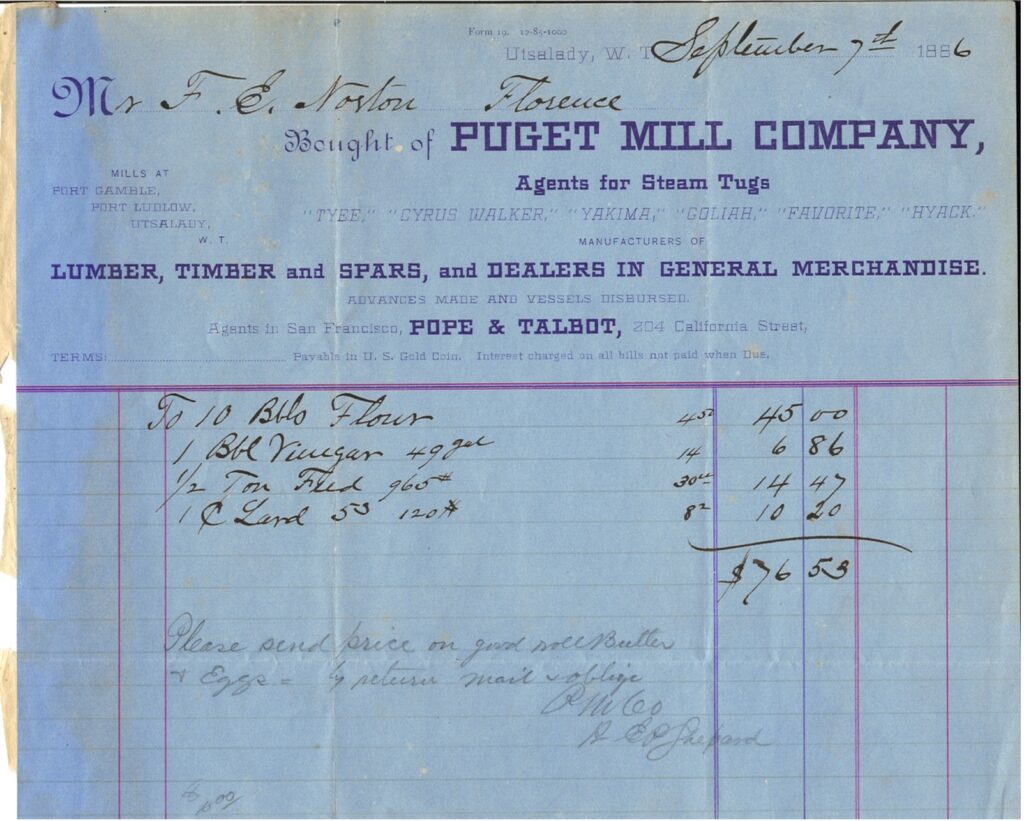 Form 19. 12-85-1000
Utsalady, W. T. September 7th 1886
Mr F. E. Norton Florence
Bought of PUGET MILL COMPANY,
MILLS AT
PORT GAMBLE,
PORT LUDLOW,
UTSALADY,
W. T.
Agents for Steam Tugs
"TYEE," "CYRUS WALKER," "YAKIMA," "GOLIAH," "FAVORITE," "HYACK."
MANUFACTURERS OF
LUMBER, TIMBER and SPARS, and DEALERS IN GENERAL MERCHANDISE.
ADVANCES MADE AND VESSELS DISBURSED.
Agents in San Francisco, POPE & TALBOT, 204 California Street,
TERMS: Payable in U. S. Gold Coin. Interest charged on all bills not paid when Due.
To 10 Bbls Flour 4 50 45 00
1 Bbl Vinegar 49 gal 14 6 86
1/2 Ton Feed 965# 30 00 14 47
1 C Lard 120# 8 1/2 10 20
$76 53
Please send price on good roll Butter
& Eggs = by return mail & oblige
P M Co
Shepard